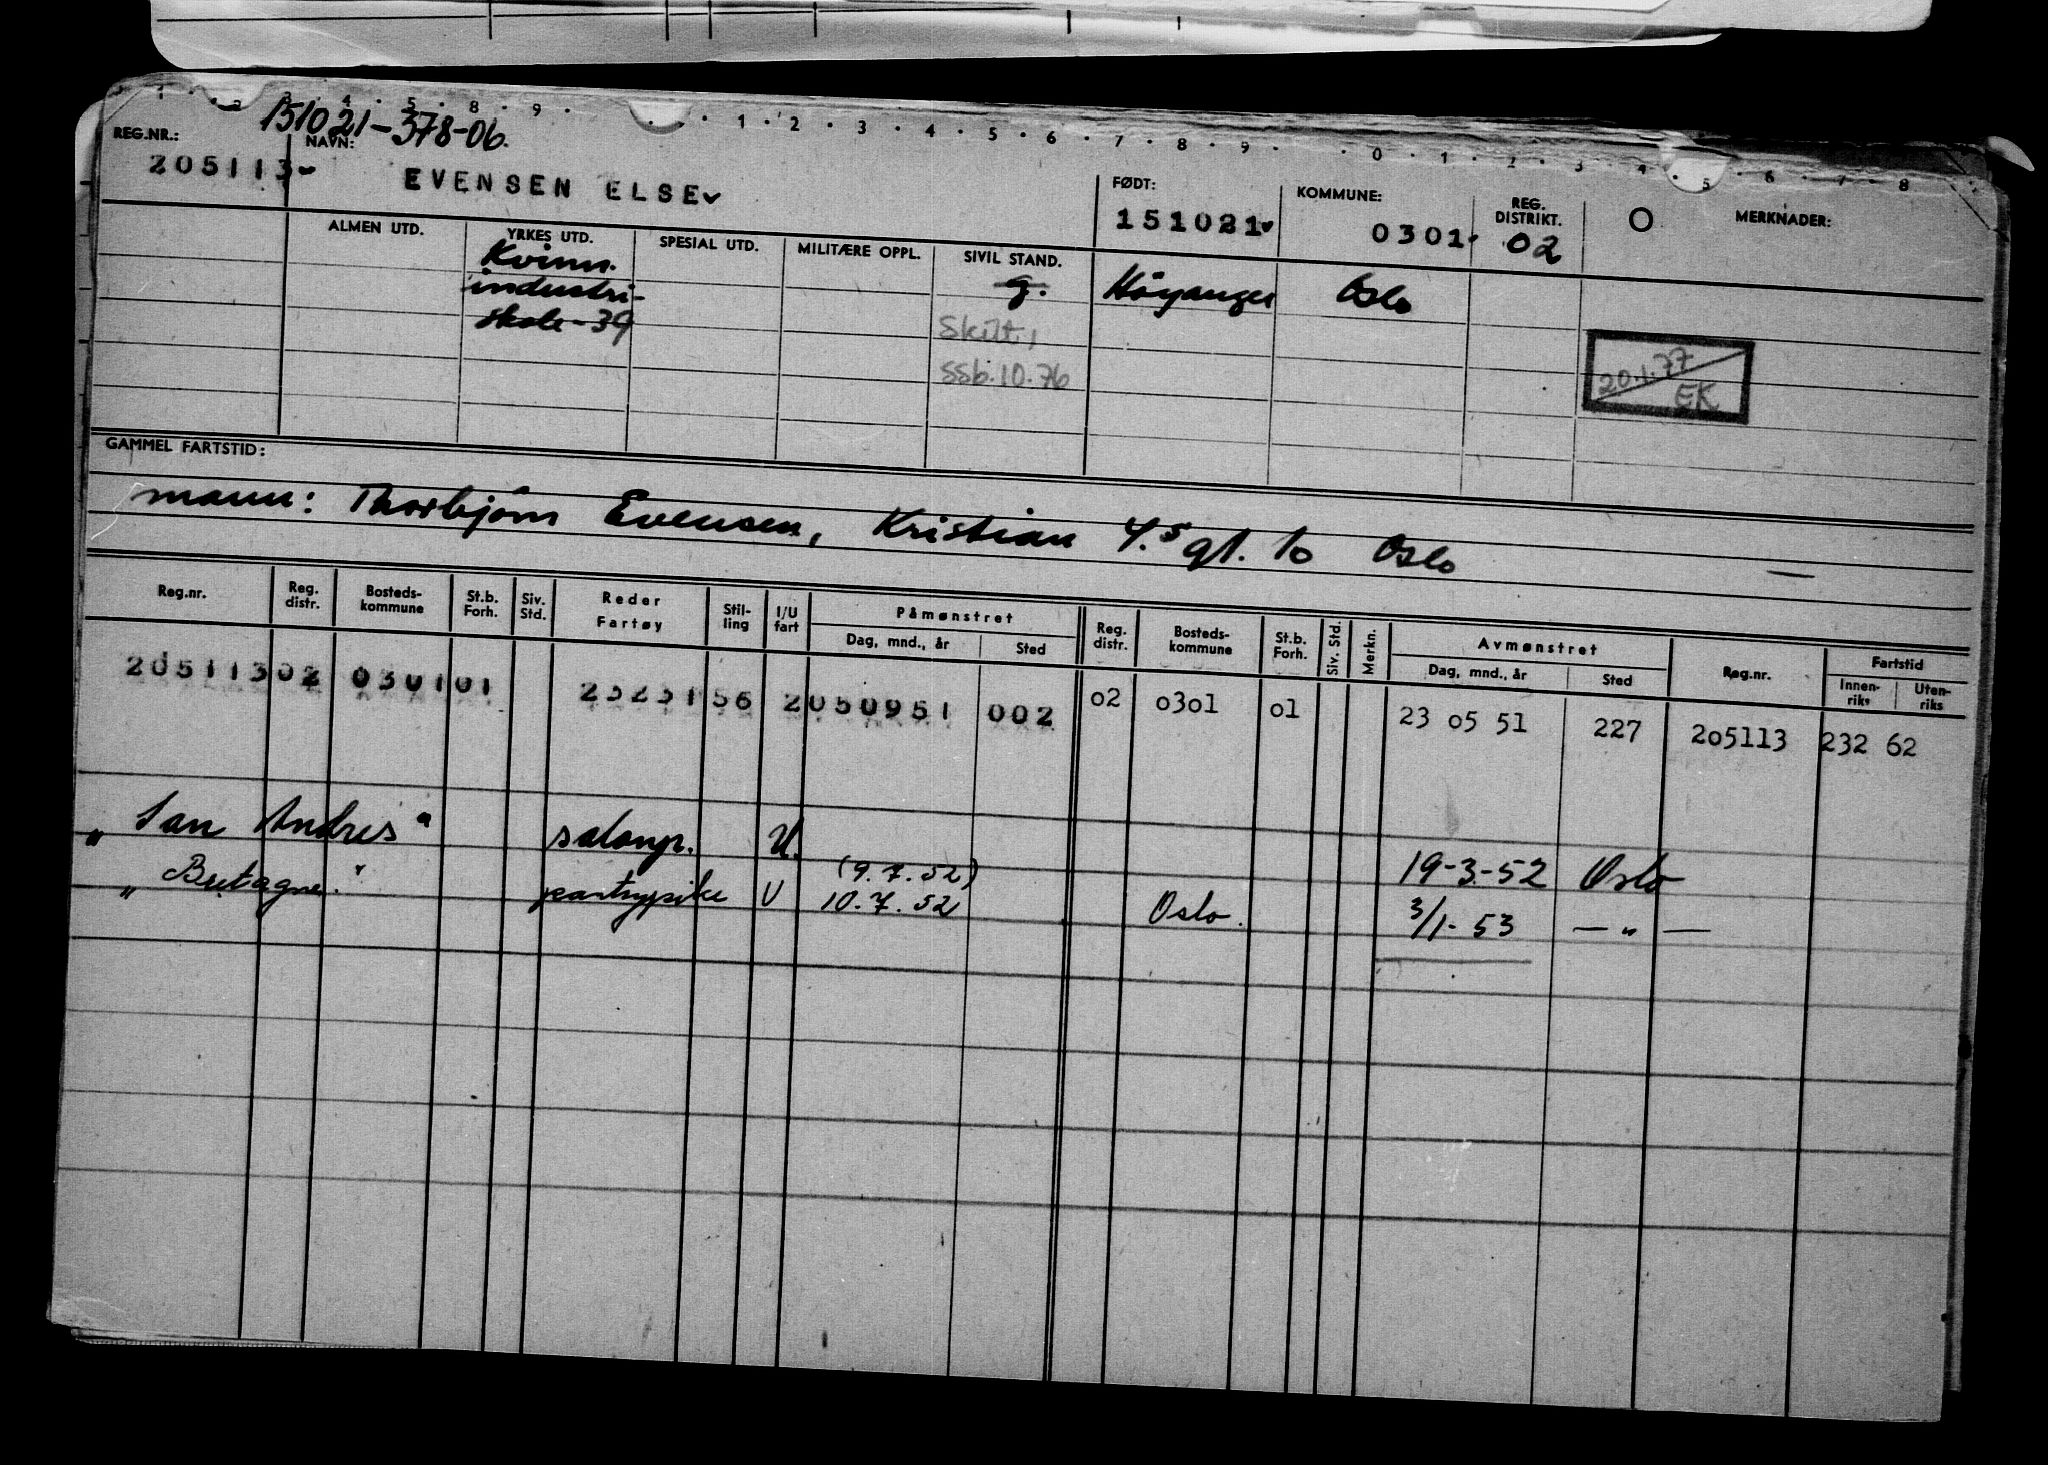 1 . 2 . 3 . 4 . 5 . 8 . 9 . . 1 . 2 . 3 . 4 . 5 . 6 . 7 . 8 . 9 . . 0 . 1 . 2 . 3 4 . 5 . 6 . 7 . 8
151021-378-06.
REG.NR.: NAVN: FØDT: KOMMUNE: REG. DISTRIKT. O MERKNADER:
205113 EVENSEN ELSE 151021 0301 02
ALMEN UTD. YRKES UTD. SPESIAL UTD. MILITÆRE OPPL. SIVIL STAND.
Kvinn. g. Höyanger Oslo
industri-
skole-39 Skilt,
ssb.10.76 20.1.77
EK
GAMMEL FARTSTID:
mann: Thorbjörn Evensen, Kristian 4.s gt. 10 Oslo —
Reg.nr. Reg. distr. Bosteds-kommune St.b. Forh. Siv. Std. Reder Fartøy Stil-ling I/U fart Påmønstret Reg. distr. Bosteds-kommune St.b. Forh. Siv. Std. Merkn. Avmønstret Reg.nr. Fartstid
Dag, mnd., år Sted Dag, mnd., år Sted Innen-riks Uten-riks
205113 02 0301 01 23231 56 2 050951 002 02 0301 01 23 05 51 227 205113 232 62
„ San Andres " salongp. U. 19-3-52 Oslo
(9.7.52)
„ Bretagne " pantrypike U 10.7.52 Oslo. 3/1-53 — „ —